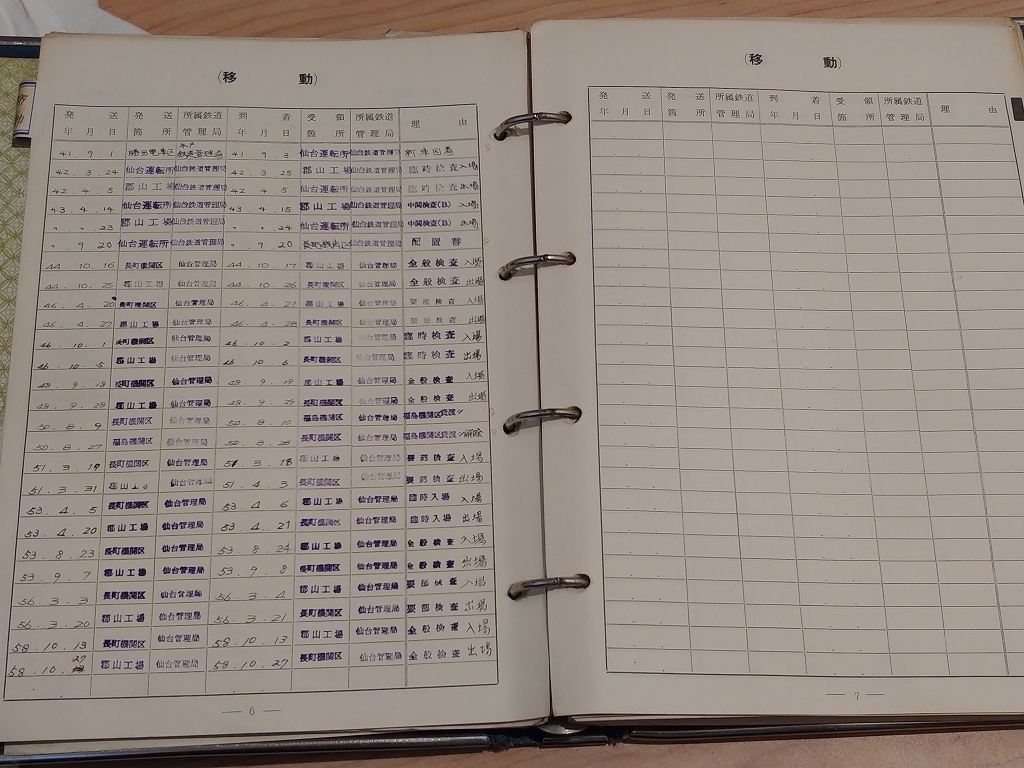 (移 動)
発 送 発 送 所属鉄道 到 着 受 領 所属鉄道 理 由
年 月 日 箇 所 管理局 年 月 日 箇 所 管理局
41. 9. 1 勝田電車区 水戸鉄道管理局 41. 9. 3 仙台運転所 仙台鉄道管理局 新車回着
42. 3. 24 仙台運転所 仙台鉄道管理局 42. 3. 25 郡山工場 仙台鉄道管理局 臨時検査 入場
42. 4. 5 郡山工場 仙台鉄道管理局 42. 4. 5 仙台運転所 仙台鉄道管理局 臨時検査 出場
43. 4. 14 仙台運転所 仙台鉄道管理局 43. 4. 15 郡山工場 仙台鉄道管理局 中間検査(B) 入場
〃 . 〃 . 23 郡山工場 仙台鉄道管理局 〃 . 〃 . 24 仙台運転所 仙台鉄道管理局 中間検査(B) 出場
〃 9 20 仙台運転所 仙台鉄道管理局 〃 9 20 長町機関区 仙台鉄道管理局 配置替
44. 10. 16 長町機関区 仙台管理局 44. 10. 17 郡山工場 仙台管理局 全般検査 入場
44. 10. 25 郡山工場 仙台管理局 44. 10. 26 長町機関区 仙台管理局 全般検査 出場
46. 4. 20 長町機関区 仙台管理局 46. 4. 21 郡山工場 仙台管理局 要部検査 入場
46. 4. 27 郡山工場 仙台管理局 46. 4. 28 長町機関区 仙台管理局 要部検査 出場
46. 10. 1 長町機関区 仙台管理局 46. 10. 2 郡山工場 仙台管理局 臨時検査 入場
46. 10. 5 郡山工場 仙台管理局 46. 10. 6 長町機関区 仙台管理局 臨時検査 出場
48. 9. 18 長町機関区 仙台管理局 48. 9. 19 郡山工場 仙台管理局 全般検査 入場
48. 9. 28 郡山工場 仙台管理局 48. 9. 29 長町機関区 仙台管理局 全般検査 出場
50. 8. 9 長町機関区 仙台管理局 50. 8. 10 福島機関区 仙台管理局 福島機関区貸渡シ
50. 8. 27 福島機関区 仙台管理局 50. 8. 28 長町機関区 仙台管理局 福島機関区貸渡シ解除
51. 3. 18 長町機関区 仙台管理局 51. 3. 18 郡山工場 仙台管理局 要部検査 入場
51. 3. 31 郡山工場 仙台管理局 51. 4. 3 長町機関区 仙台管理局 要部検査 出場
53. 4. 5 長町機関区 仙台管理局 53. 4. 6 郡山工場 仙台管理局 臨時入場 入場
53. 4. 20 郡山工場 仙台管理局 53. 4. 21 長町機関区 仙台管理局 臨時入場 出場
53. 8. 23 長町機関区 仙台管理局 53. 8. 24 郡山工場 仙台管理局 全般検査 入場
53. 9. 7 郡山工場 仙台管理局 53. 9. 8 長町機関区 仙台管理局 全般検査 出場
56. 3. 3 長町機関区 仙台管理局 56. 3. 4 郡山工場 仙台管理局 要部検査 入場
56. 3. 20 郡山工場 仙台管理局 56. 3. 21 長町機関区 仙台管理局 要部検査 出場
58. 10. 13 長町機関区 仙台管理局 58. 10. 13 郡山工場 仙台管理局 全般検査 入場
58. 10. 27 郡山工場 仙台管理局 58. 10. 27 長町機関区 仙台管理局 全般検査 出場
— 6 —
(移 動)
発 送 発 送 所属鉄道 到 着 受 領 所属鉄道 理 由
年 月 日 箇 所 管理局 年 月 日 箇 所 管理局
— 7 —